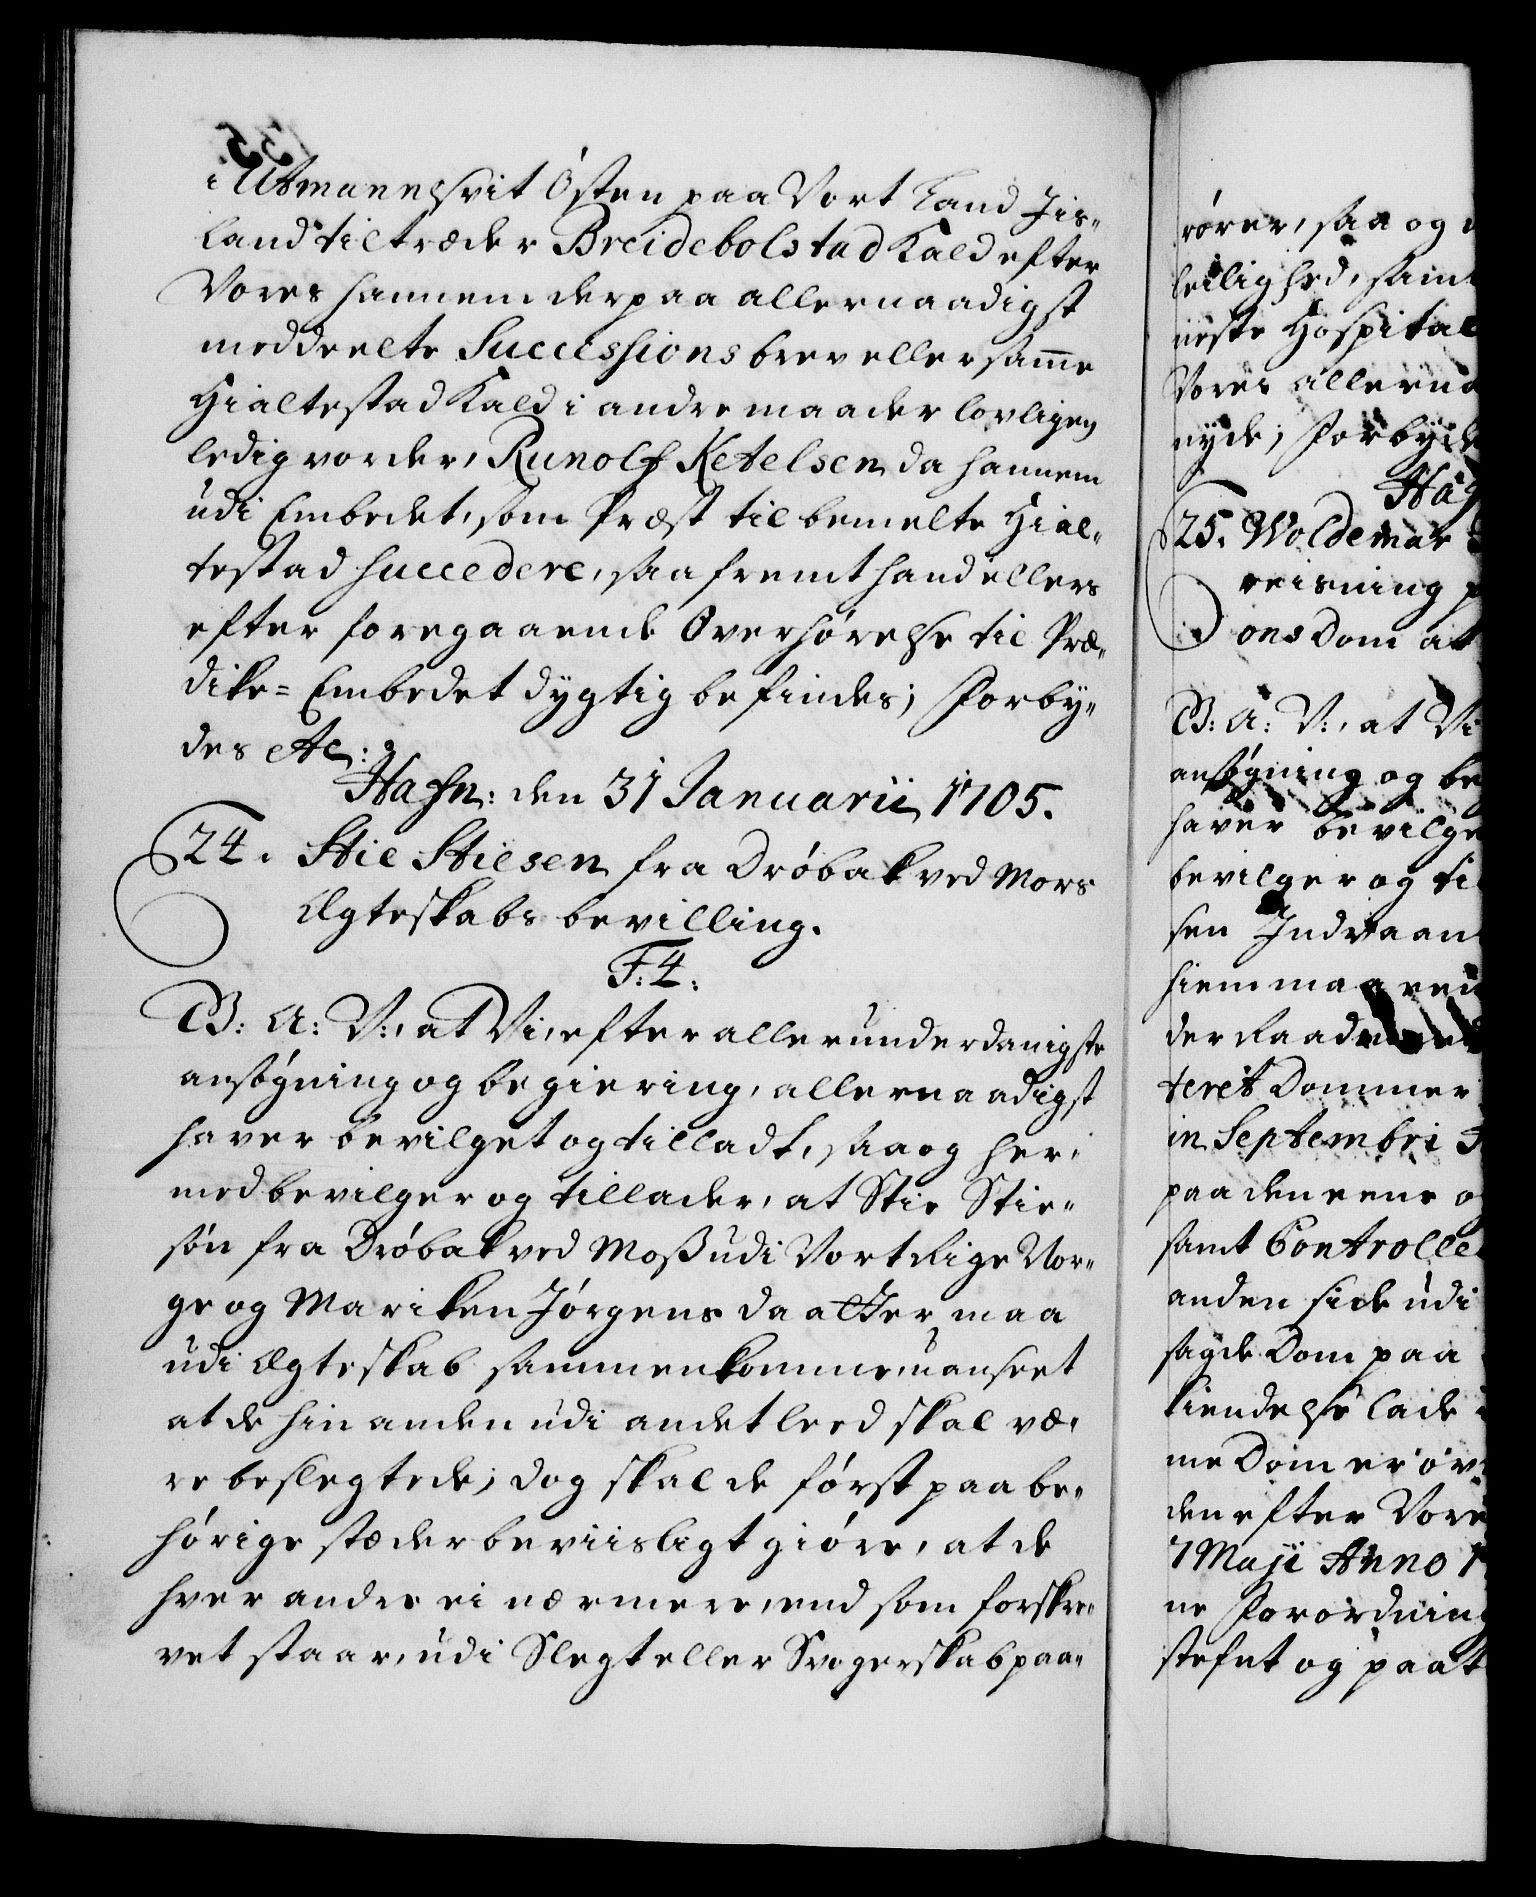 i Utmannsvit Østen paa Vort Land Jis-
land tiltræder Breidebolstad Kald efter
Vores hannem derpaa allernaadigst
meddeelte Successions brev eller samme
Hialtestad Kald i andre maader lovligen
ledig vorder, Runolf Ketelsen da hannem
udi Embedet, som Præst til bemelte Hial-
testad succedere, saafremt hand ellers
efter foregaaende Overhørelse til Præ-
dike-Embedet dygtig befindes; Forby-
des etc:
Hafn: den 31 Januarii 1705.
24. Stie Stiesen fra Drøbak ved Mors
Ægteskabs bevilling.
F: 4:
G: A: V:, at Vi, efter allerunderdanigste
ansøgning og begiering, allernaadigst
haver bevilget og tilladt, saa og her-
med bevilger og tillader, at Stie Stie-
søn fra Drøbak ved Moss udi Vort Rige Nor-
ge og Mariken Jørgens daatter maa
udi Ægteskab sammenkomme, uanseet
at de hin anden udi andet leed skal væ-
re beslegtede; dog skal de først paa be-
hørige stæder beviisligt giøre, at de
hver andre ei nærmere, end som forskre-
vet staar, udi Slegt eller Svogerskab paa-
rører, saa og
leilighed, samt
neste Hospital
Vores allerna
nyde; Forbyde
Haf
25. Woldemar
reisning
ons Dom at
G: A: V:, at Vi
ansøgning og be
haver bevilge
bevilger og til
sen Indvaan
hiem maa
der Raadmand
teret Dommer
in Septembri
paa den eene
samt Controlle
anden side udi
sagde Dom paa
kiendelse lade
me Dom er
den efter Vore
7 Maji Anno 1
ne Forordning
stefnt og paat